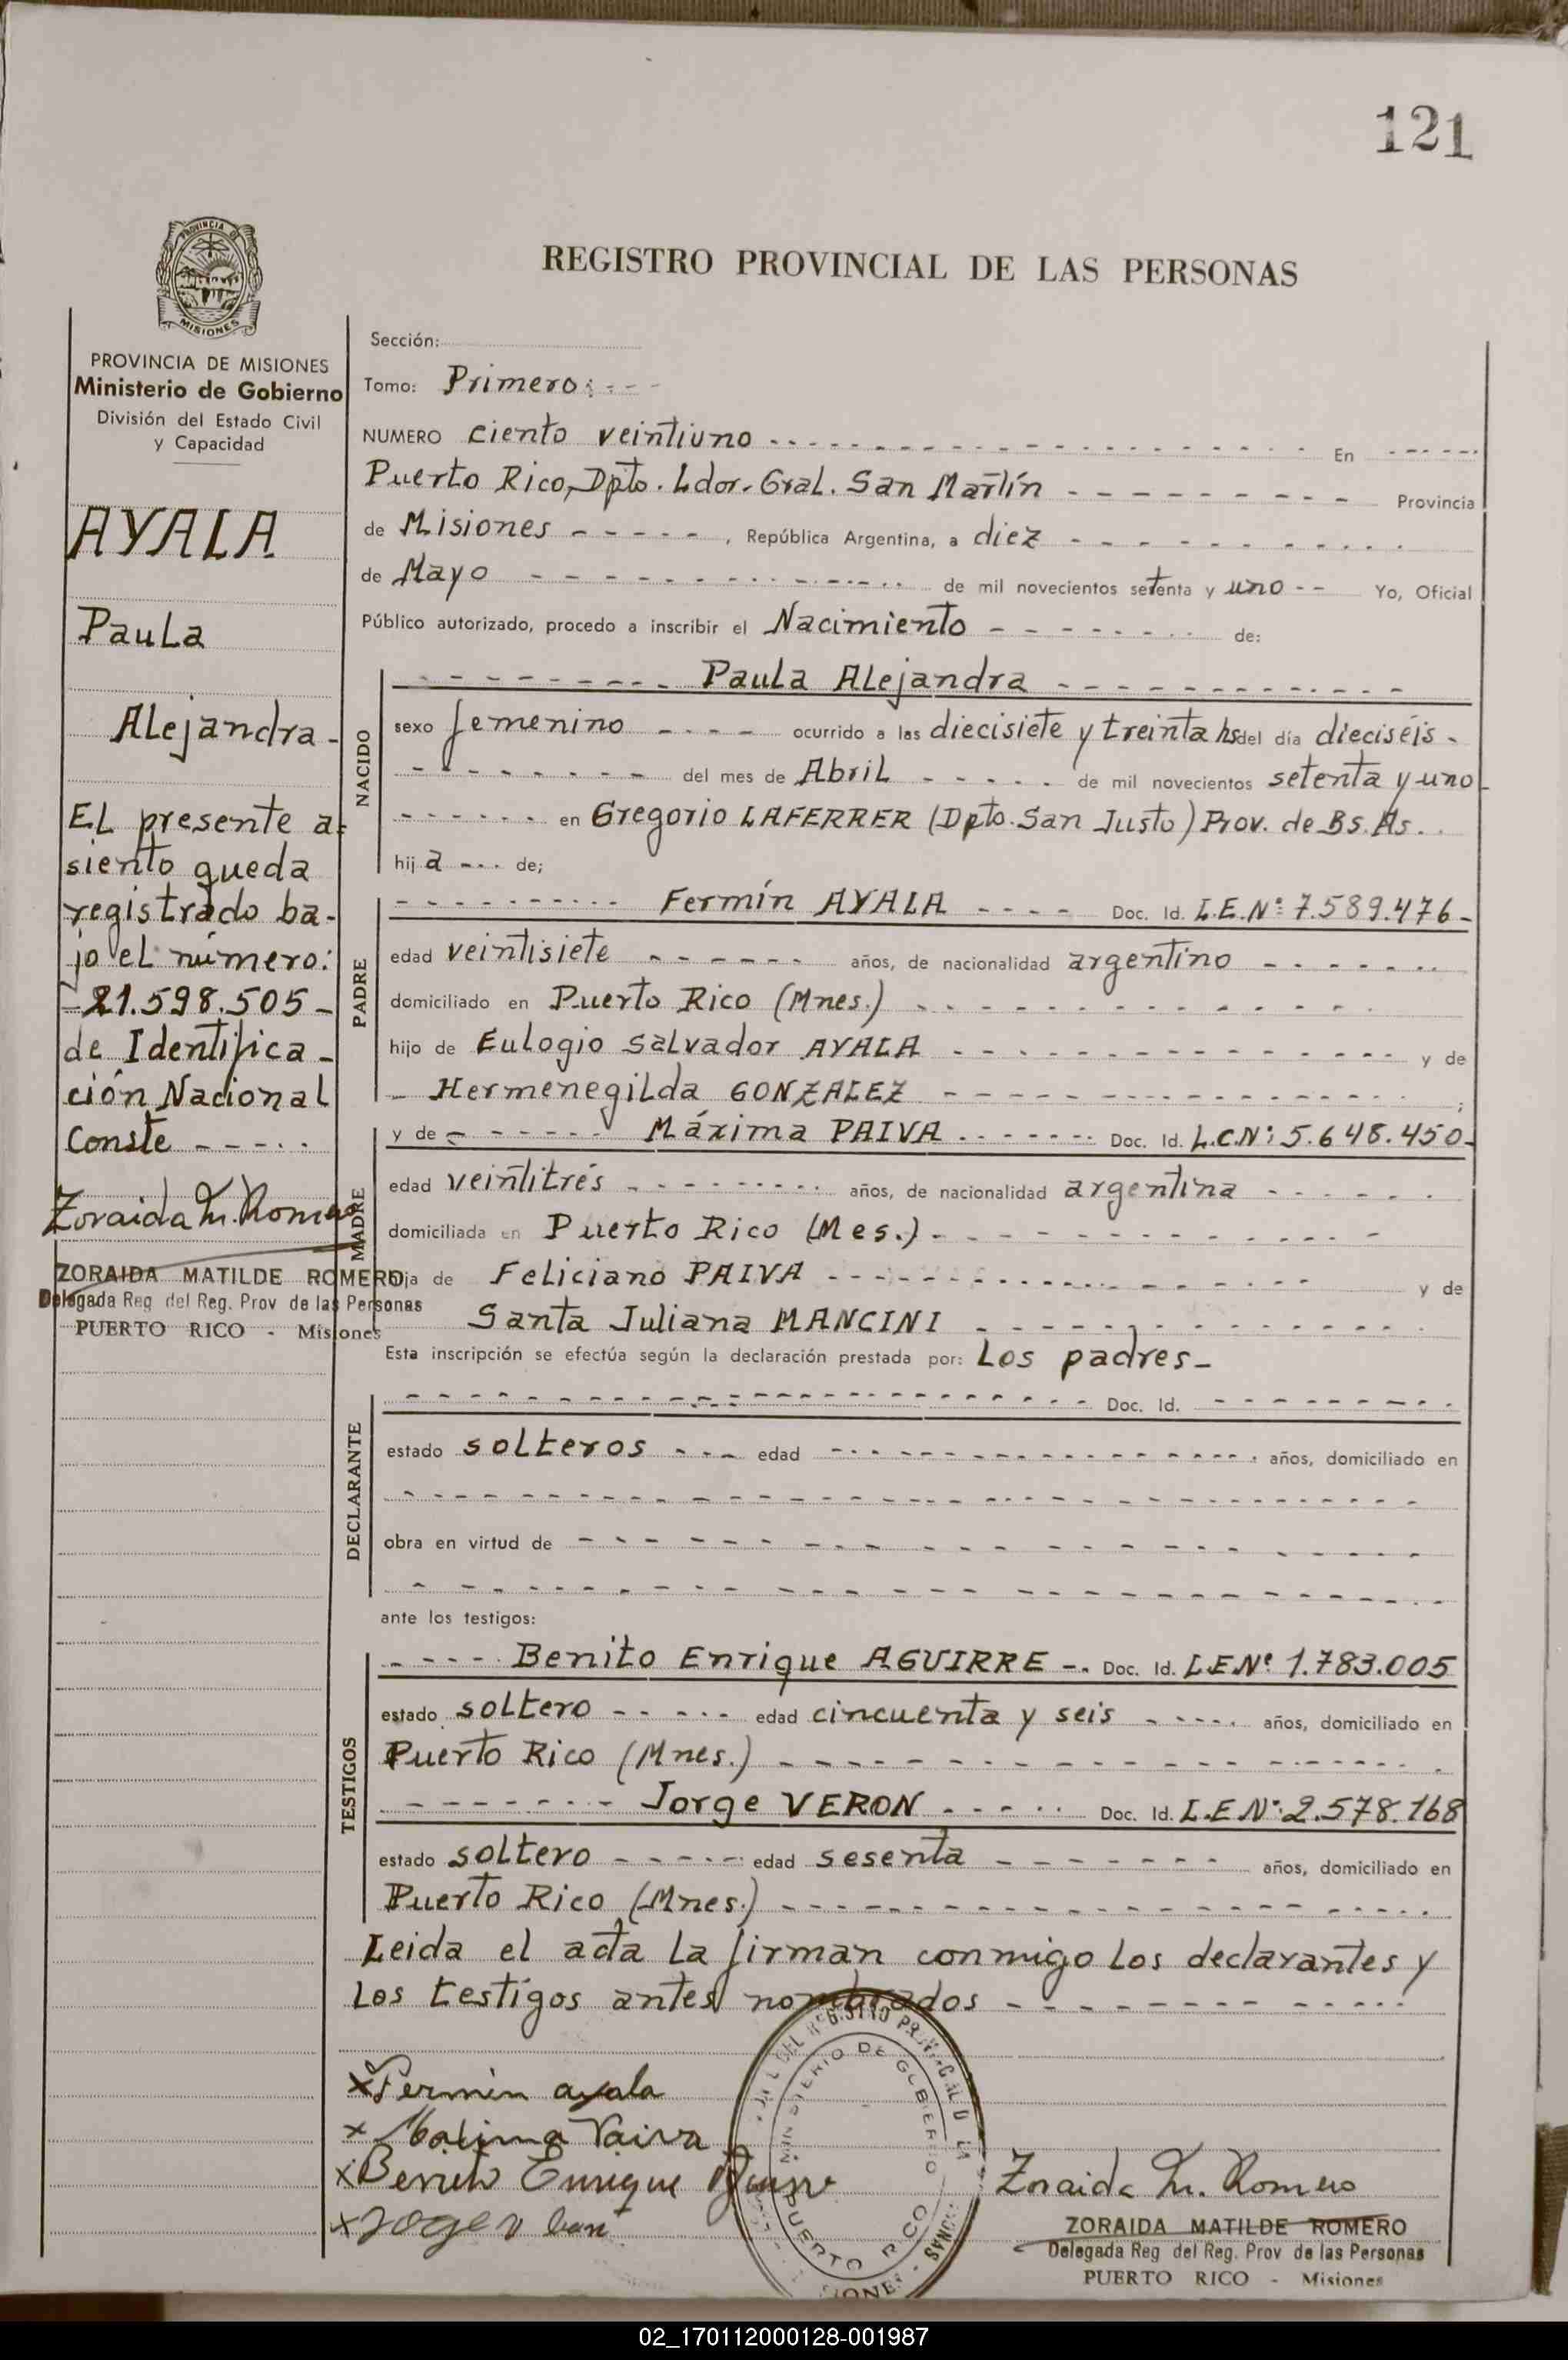 121
REGISTRO PROVINCIAL DE LAS PERSONAS
PROVINCIA DE
MISIONES
PROVINCIA DE MISIONES
Ministerio de Gobierno
División del Estado Civil
y Capacidad
AYALA
Paula
Alejandra-
EL presente a=
siento queda
registrado ba-
jo el número:
-21.598.505-
de Identifica-
ción Nacional
Conste -----
Zoraida M. Romero
ZORAIDA MATILDE ROMERO
Delegada Reg del Reg. Prov de las Personas
PUERTO RICO - Misiones
Sección:
Tomo: Primero:---
NUMERO ciento veintiuno --- En ---
Puerto Rico, Dpto. Ldor. Gral. San Martín --- Provincia
de Misiones ---, República Argentina, a diez ---
de Mayo --- de mil novecientos setenta y uno -- Yo, Oficial
Público autorizado, procedo a inscribir el Nacimiento --- de:
NACIDO
--- Paula Alejandra ---
sexo femenino --- ocurrido a las diecisiete y treinta hs del día dieciséis-
--- del mes de Abril --- de mil novecientos setenta y uno-
--- en Gregorio LAFERRER (Dpto. San Justo) Prov. de Bs. As.
hij a --- de;
PADRE
--- Fermín AYALA --- Doc. Id. L.E.Nº: 7.589.476-
edad veintisiete --- años, de nacionalidad argentino ---
domiciliado en Puerto Rico (Mnes.) ---
hijo de Eulogio Salvador AYALA --- y de
- Hermenegilda GONZALEZ --- ;
MADRE
y de --- Máxima PAIVA --- Doc. Id. L.C.N: 5.648.450-
edad veintitrés --- años, de nacionalidad argentina ---
domiciliada en Puerto Rico (Mes.) ---
hija de Feliciano PAIVA --- y de
Santa Juliana MANCINI ---
Esta inscripción se efectúa según la declaración prestada por: Los padres-
DECLARANTE
--- Doc. Id. ---
estado solteros --- edad --- años, domiciliado en
---
obra en virtud de ---
---
ante los testigos:
TESTIGOS
--- Benito Enrique AGUIRRE -. Doc. Id. L.E.Nº 1.783.005
estado soltero --- edad cincuenta y seis --- años, domiciliado en
Puerto Rico (Mnes.) ---
--- Jorge VERON --- Doc. Id. L.E.Nº: 2.578.168
estado soltero --- edad sesenta --- años, domiciliado en
Puerto Rico (Mnes.) ---
Leida el acta la firman conmigo los declarantes y
los testigos antes nombrados ---
xFermin ayala
x Maxima Paiva
xBenito Enrique Aguirre
PUERTO RICO
Zoraida M. Romero
ZORAIDA MATILDE ROMERO
Delegada Reg del Reg. Prov de las Personas
PUERTO RICO - Misiones
02_170112000128-001987